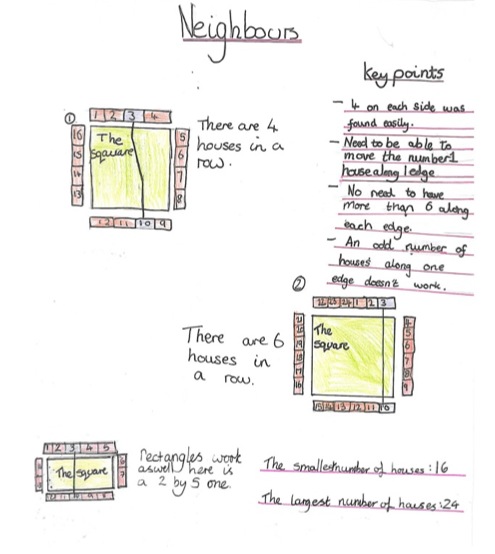 Neighbours
Key points
- 4 on each side was
found easily.
- Need to be able to
move the number1
house along 1 edge
- No need to have
more than 6 along
each edge.
- An odd number of
houses along one
edge doesn't work.
①
1 2 3 4
16
15
14
13
The
sqauare
5
6
7
8
12 11 10 9
There are 4
houses in a
row.
②
22 23 24 1 2 3
21
20
19
18
17
16
The
square
4
5
6
7
8
9
15 14 13 12 11 10
There are 6
houses in
a row.
1 2 3 4 5
The square
6
7
12 11 10 9 8
rectangles work
aswell here is
a 2 by 5 one.
The smallest number of houses : 16
The largest number of houses :24